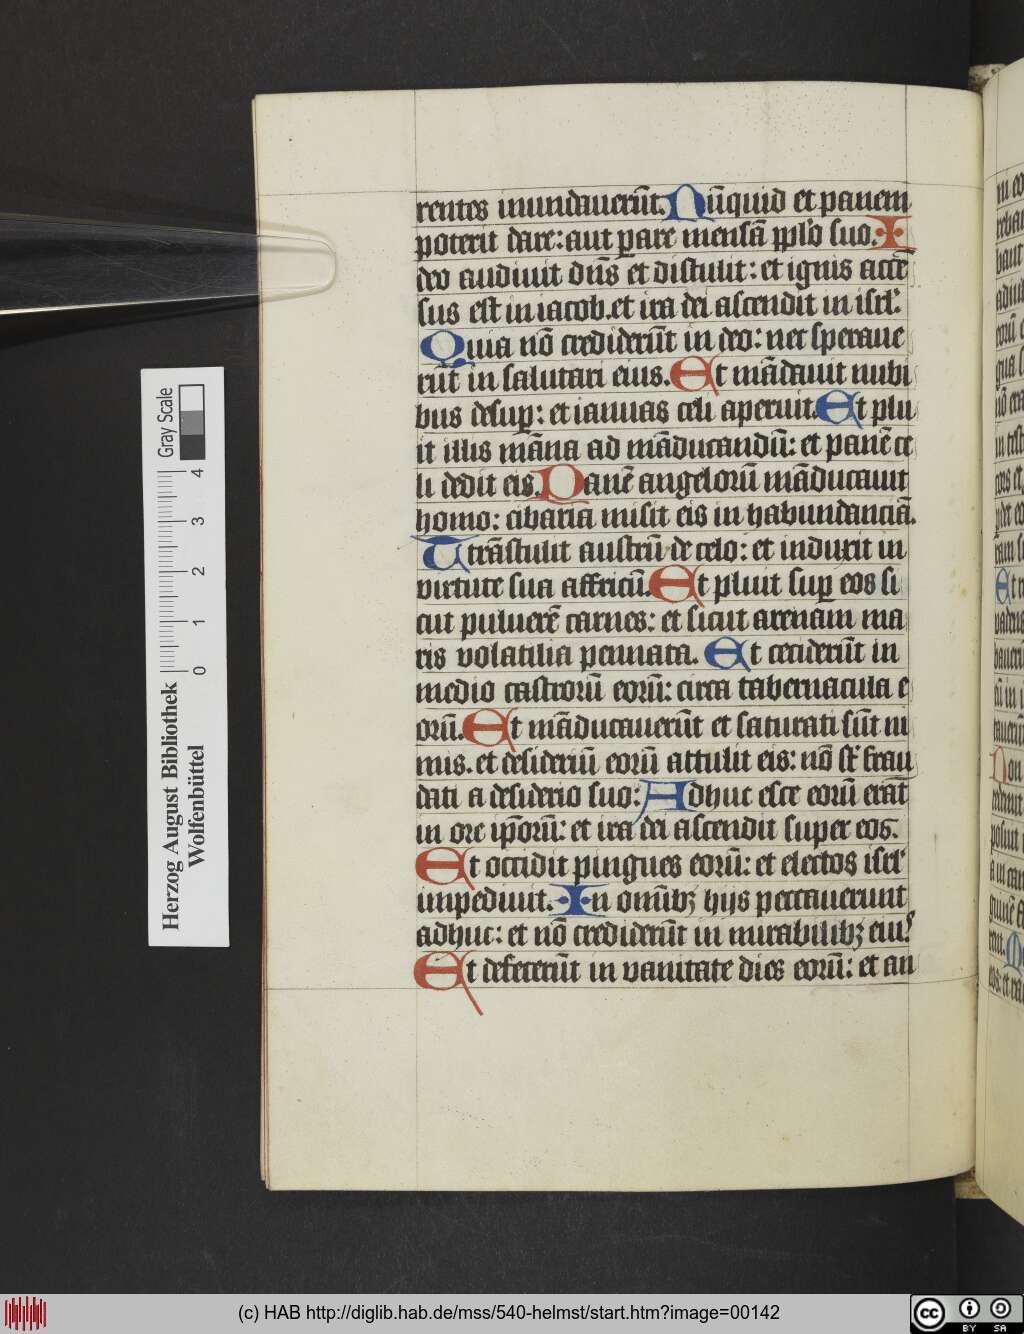 rentes inundauerūt. Nūquid et panem
poterit dare: aut ꝑare mensā ppl̄o suo. I
deo audiuit dn̄s et distulit: et ignis accē
sus est in iacob. et ira dei ascendit in isrl̄.
Quia nō crediderūt in deo: nec speraue
rūt in salutari eius. Et mādauit nubi
bus desuꝑ: et ianuas celi aperuit. Et plu
it illis māna ad māducandū: et panē ce
li dedit eis. Panē angelorū māducauit
homo: cibaria misit eis in habundanciā.
Trāstulit austrū de celo: et induxit in
virtute sua affricū. Et pluit suꝑ eos si
cut puluerē carnes: et sicut arenam ma
ris volatilia pennata. Et ceciderūt in
medio castrorū eorū: circa tabernacula e
orū. Et māducauerūt et saturati sūt ni
mis. et desideriū eorū attulit eis: nō sūt frau
dati a desiderio suo: Adhuc esce eorū erāt
in ore ip̄orū: et ira dei ascendit super eos.
Et occidit pingues eorū: et electos isrl̄
impediuit. In omībꝫ hijs peccauerunt
adhuc: et nō crediderūt in mirabilibꝫ eiuꝰ
Et defecerūt in vanitate dies eorū: et an
Herzog August Bibliothek
Wolfenbüttel
Gray Scale
0 1 2 3 4
(c) HAB http://diglib.hab.de/mss/540-helmst/start.htm?image=00142
cc BY SA